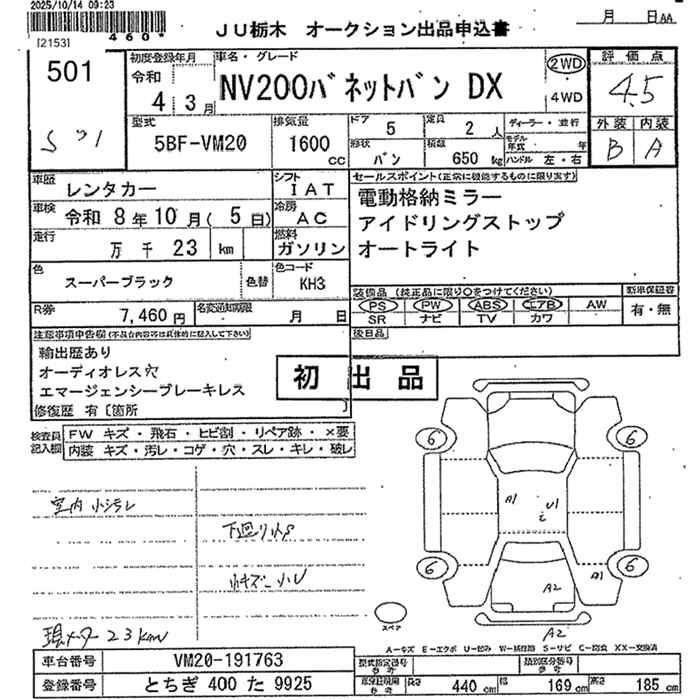 2025/10/14 09:23
[2153]
460*
JU栃木 オークション出品申込書
月 日 AA
501
初度登録年月
令和
4 3月
車名・グレード
NV200バネットバン DX
2WD
4WD
評価点
4.5
外装 内装
B A
型式
5BF-VM20
排気量
1600
cc
ドア
5
定員
2 人
形状
バン
積載
650 kg
ディーラー・並行
モデル年式 年
ハンドル 左・右
車歴 レンタカー
シフト
IAT
車検 令和 8年 10月( 5日)
冷房
AC
走行
万 千 23 km
燃料
ガソリン
色
スーパーブラック
色替
色コード
KH3
R券
7,460円
名変通知期限
月 日
セールスポイント(正常に機能するものに限り)
電動格納ミラー
アイドリングストップ
オートライト
装備品 (純正品に限り○をつけてください)
新車保証書
PS PW ABS エアB AW
有・無
SR ナビ TV カワ
後日品
注意事項申告欄(不具合内容等は具体的に記入して下さい)
輸出歴あり
オーディオレス穴
エマージェンシーブレーキレス
修復歴 有〔箇所
初 出 品
検査員記入欄
FW キズ・飛石・ヒビ割・リペア跡・×要
内装 キズ・汚レ・コゲ・穴・スレ・キレ・破レ
室内小汚レ
下廻り小サ
小キズ 小U
現メーター 23km
6
6
6
6
A1
U1
A2
A1
A2
スペア
A-キズ E-エクボ U-凹み W-補修跡 S-サビ C-腐食 XX-交換済
車台番号 VM20-191763
登録番号 とちぎ 400 た 9925
型式指定番号
参考
類別区分番号
参考
車検証明細
参考
長さ 440 cm
幅 169 cm
高さ 185 cm